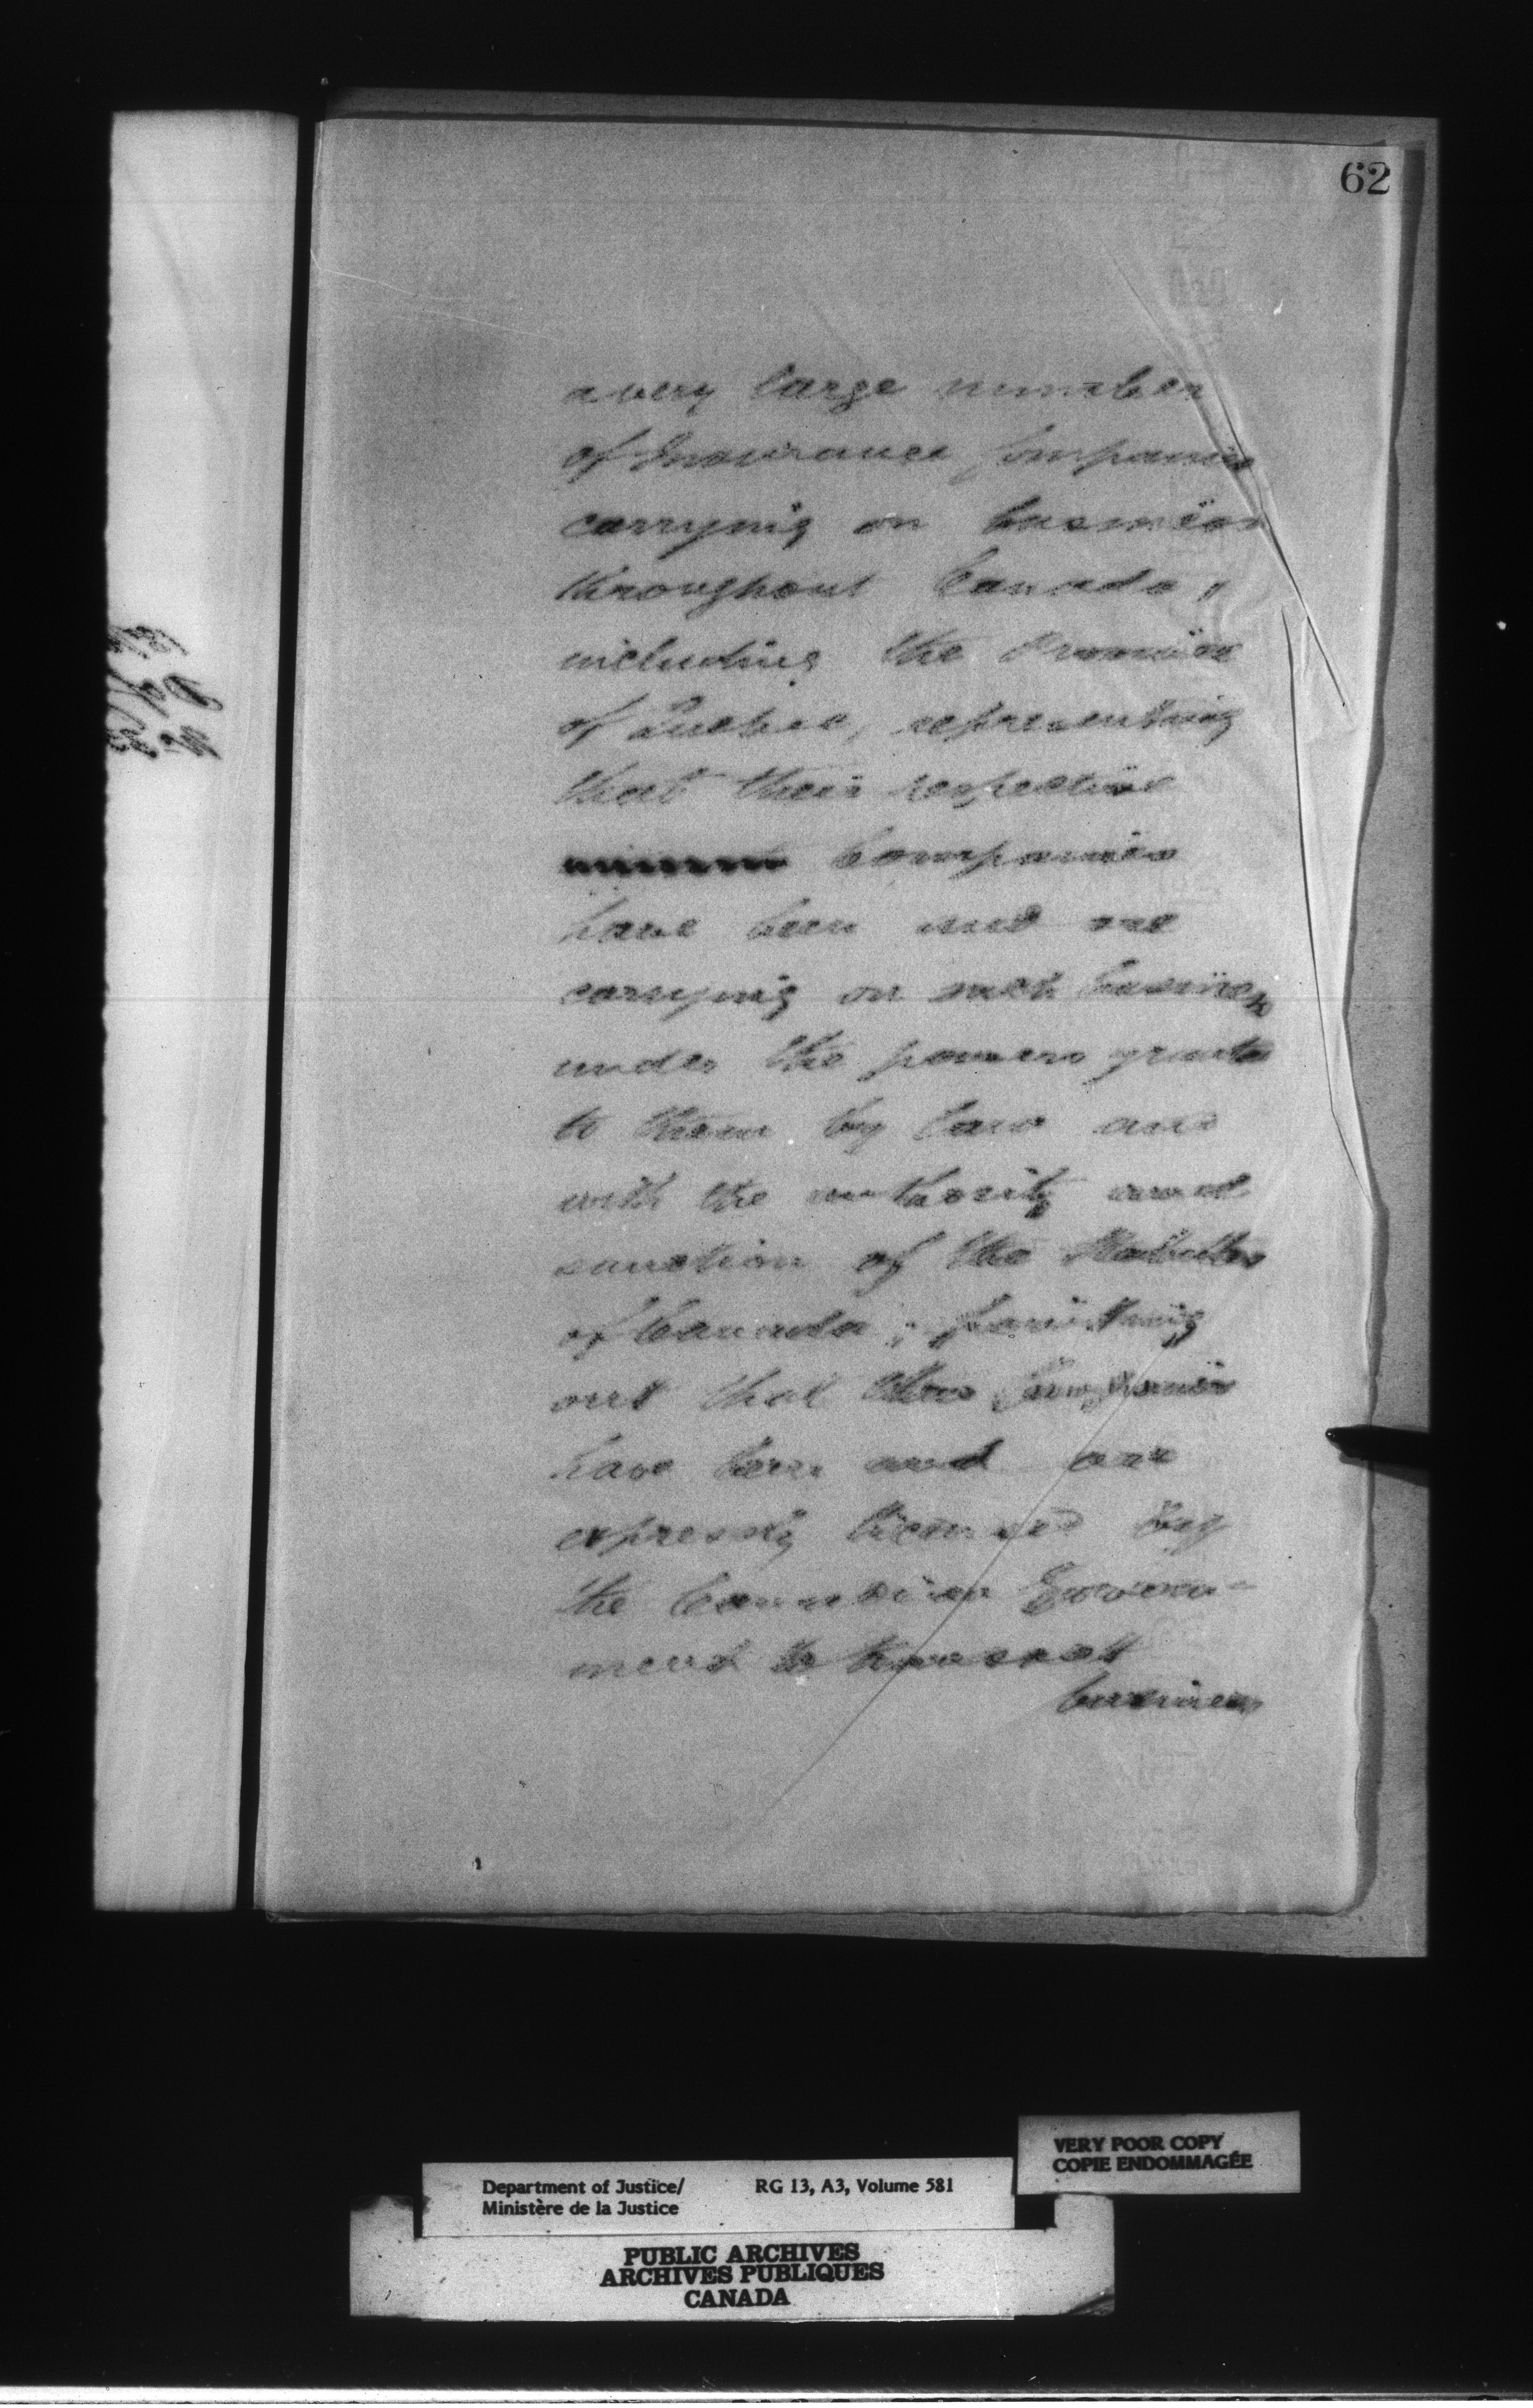 62
a very large number
of Insurance Companies
carrying on business
throughout Canada,
including the Province
of Quebec, representing
that their respective
Companies
have been and are
carrying on such business
under the powers granted
to them by law and
with the authority and
sanction of the Statutes
of Canada; pointing
out that these Companies
have been and are
expressly licensed by
the Canadian Govern-
ment to transact
business
VERY POOR COPY
COPIE ENDOMMAGÉE
Department of Justice/ RG 13, A3, Volume 581
Ministère de la Justice
PUBLIC ARCHIVES
ARCHIVES PUBLIQUES
CANADA